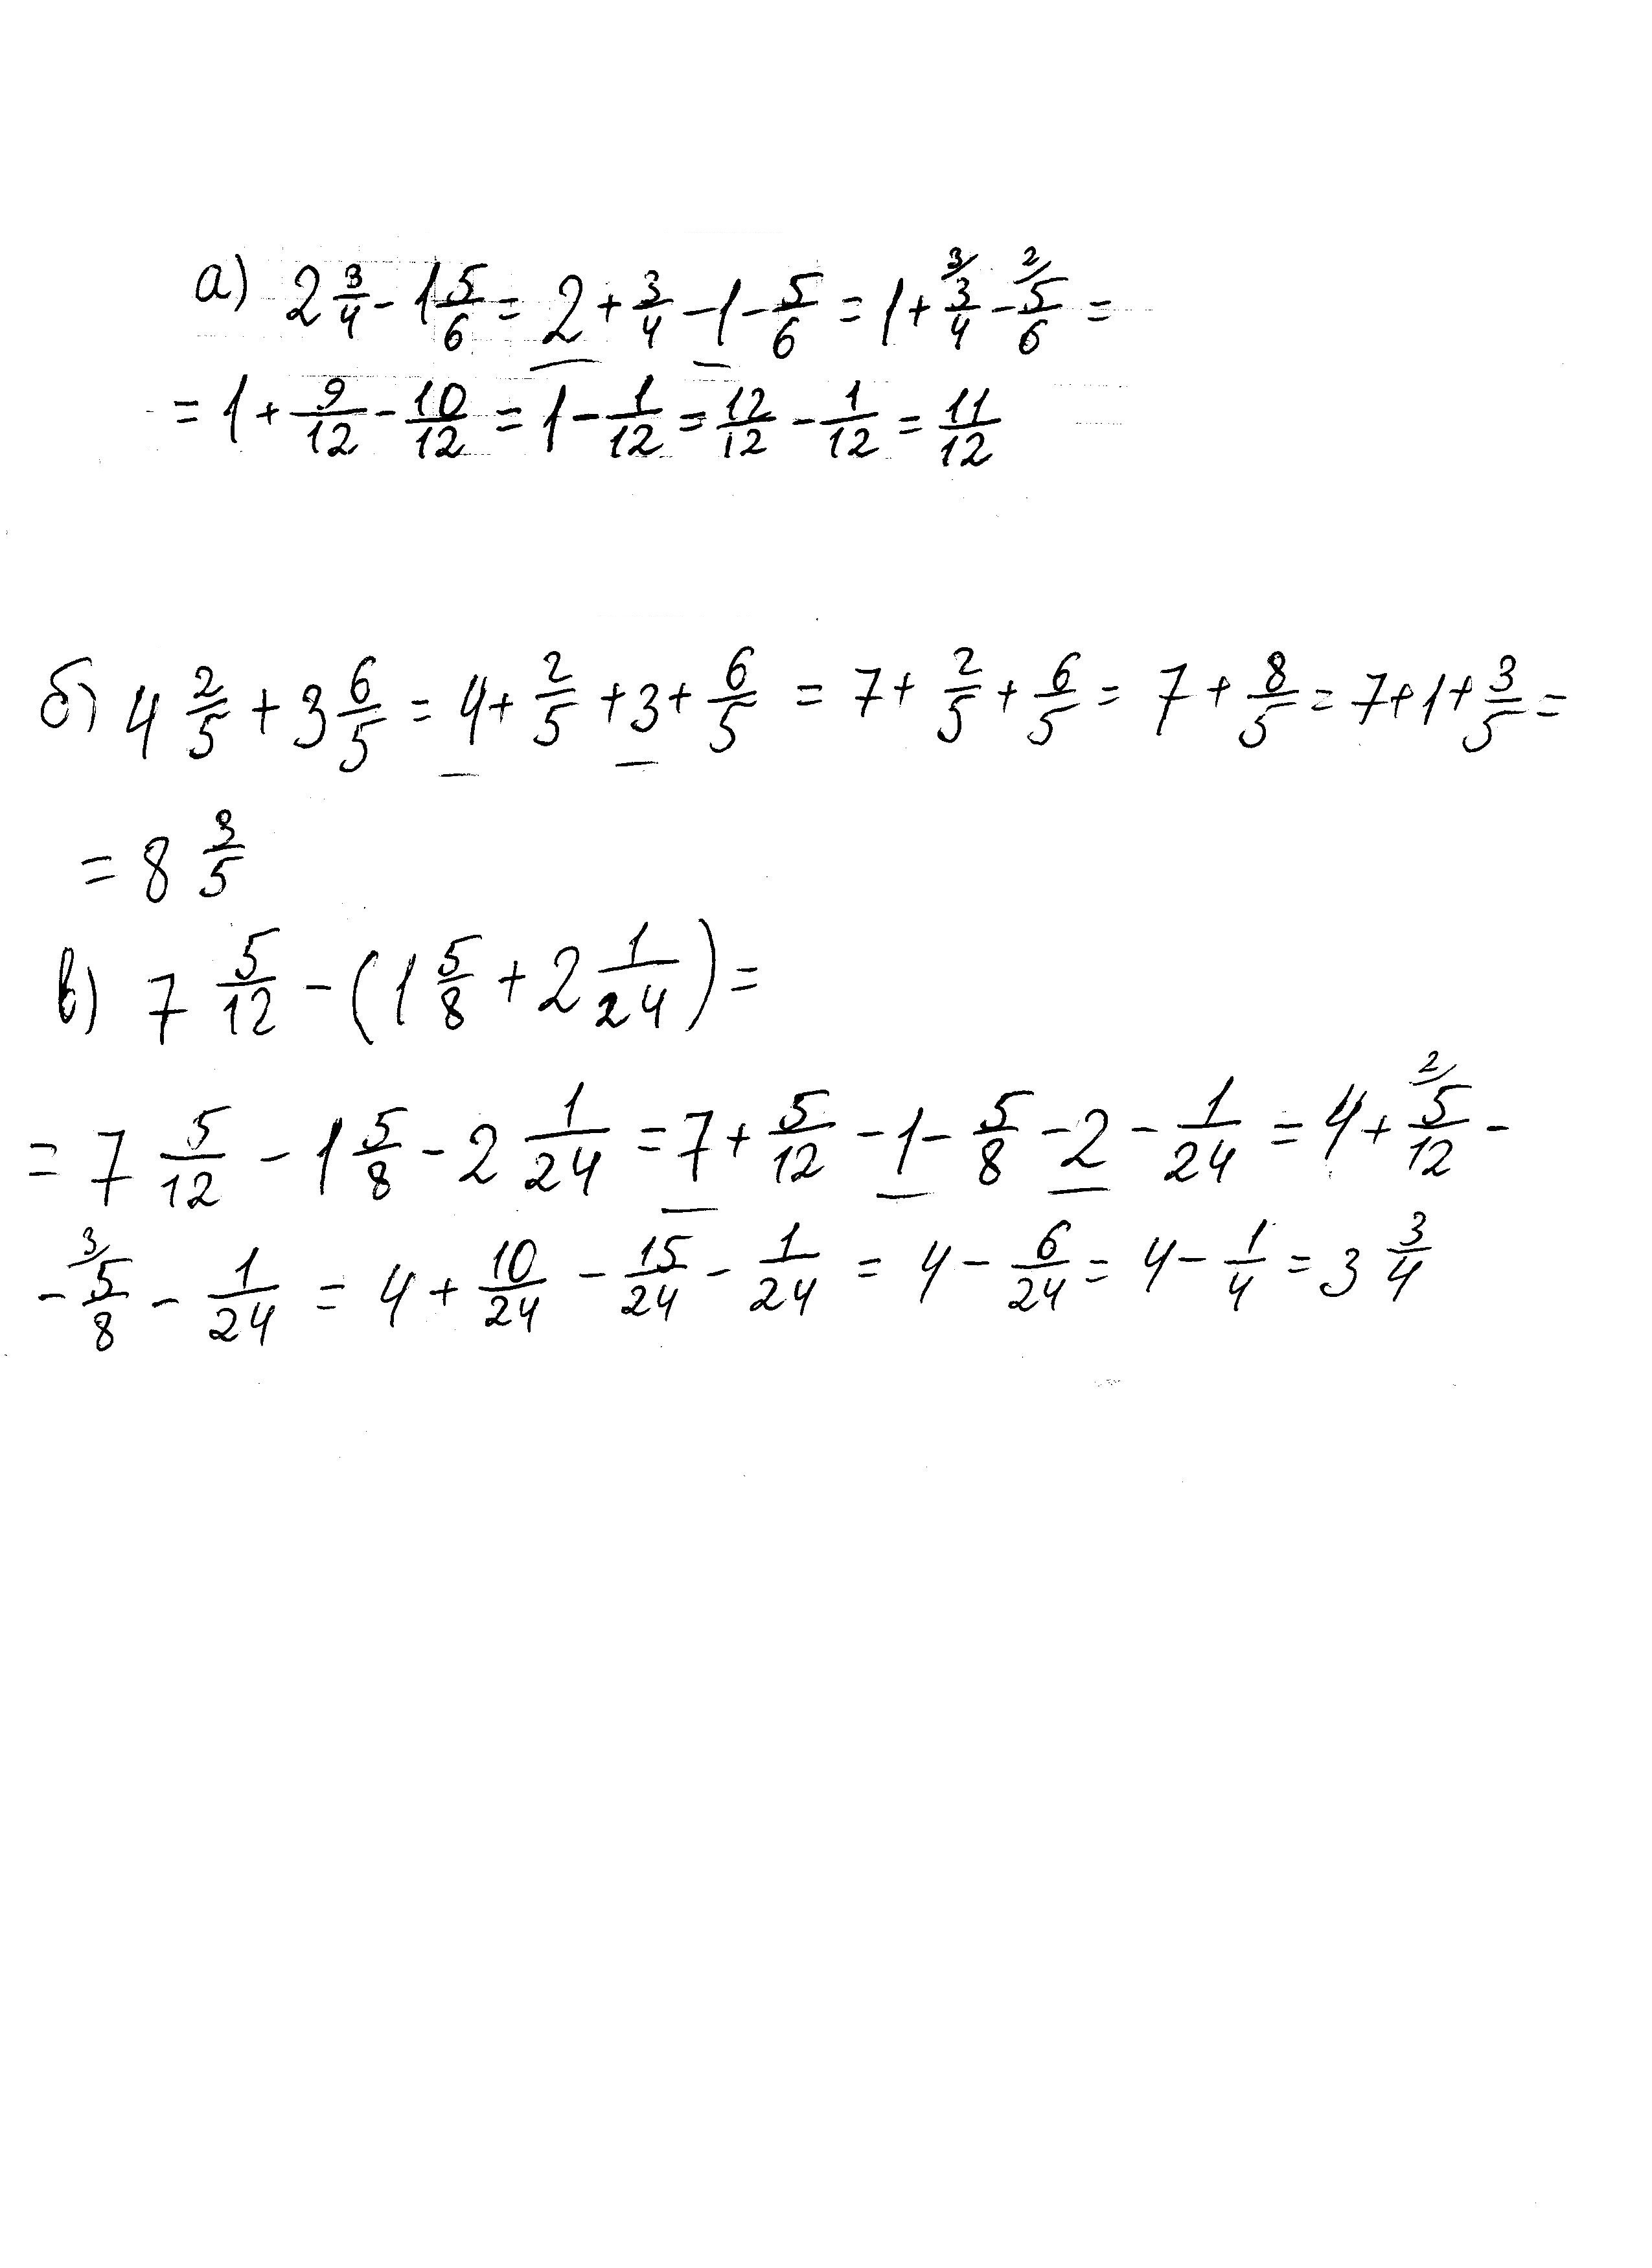 а) 2 3/4 - 1 5/6 = 2 + 3/4 - 1 - 5/6 = 1 + 3/ 3/4 - 2/ 5/6 =
= 1 + 9/12 - 10/12 = 1 - 1/12 = 12/12 - 1/12 = 11/12
б) 4 2/5 + 3 6/5 = 4 + 2/5 + 3 + 6/5 = 7 + 2/5 + 6/5 = 7 + 8/5 = 7 + 1 + 3/5 =
= 8 3/5
в) 7 5/12 - (1 5/8 + 2 1/24) =
= 7 5/12 - 1 5/8 - 2 1/24 = 7 + 5/12 - 1 - 5/8 - 2 - 1/24 = 4 + 2/ 5/12 -
- 3/ 5/8 - 1/24 = 4 + 10/24 - 15/24 - 1/24 = 4 - 6/24 = 4 - 1/4 = 3 3/4